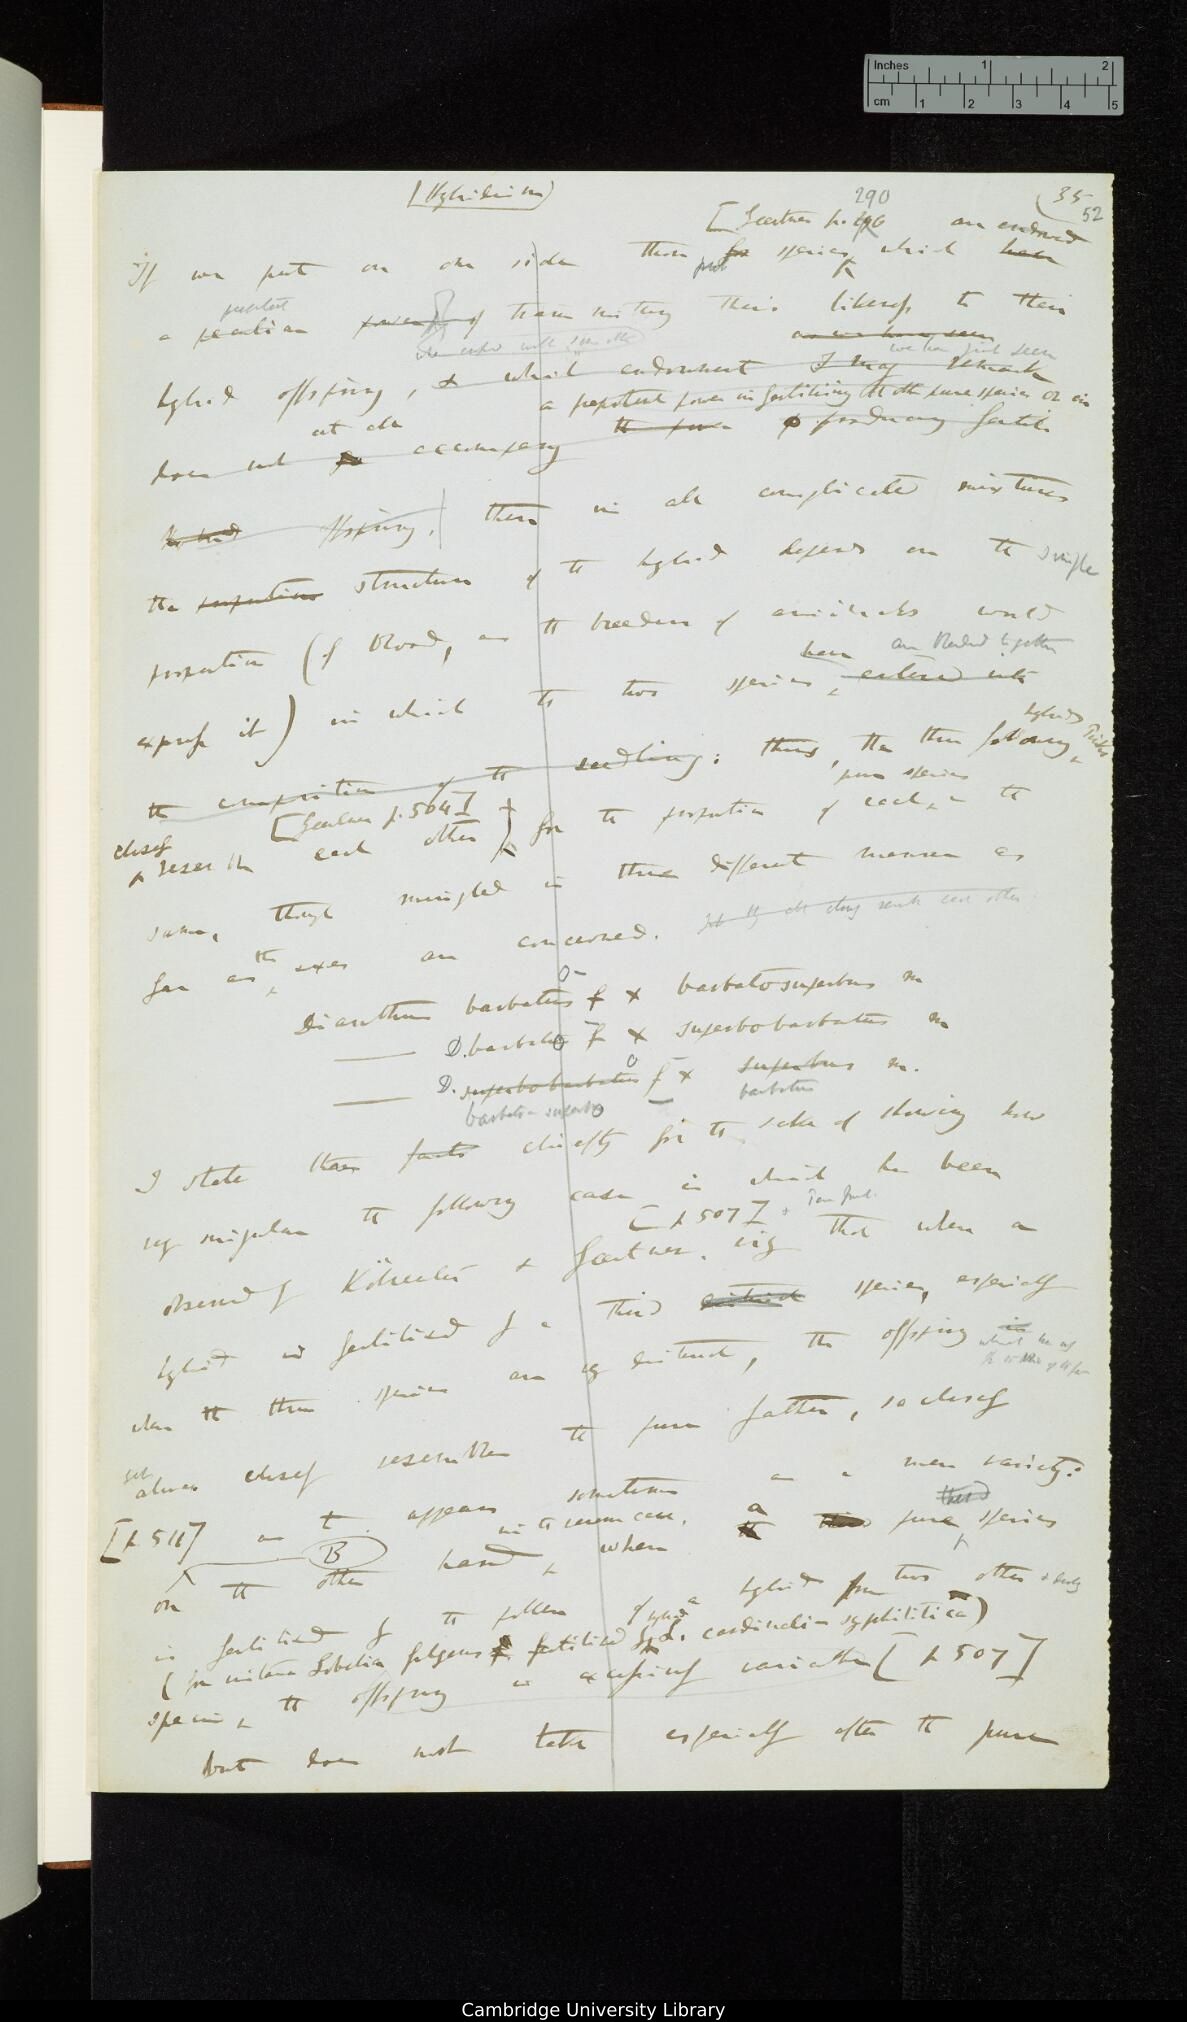 Inches 1 2
cm 1 2 3 4 5
(Hybridism)
290
(35
52
[Gærtner p. 290 are endowed
If we put on one side those few species, which have
prepotent
a peculiar power of transmitting their likeness to their
as we have seen
we have just seen
hybrid offspring, & which endowment I may remark
a prepotent power in fertilising the other pure species or in
at all
does not accompany the power producing fertile
hybrid offspring, then in all complicated mixtures
the structure of the hybrid depends on the simple
proportion (of blood, as the breeders of animals would
have are blended together
express it) in which the two species, entered into
hybrids
the composition of the seedling: thus, the three following
[Gærtner p. 504] pure species
closely resemble each other) for the proportion of each in the
same, though mingled in three different manners as
far as the sexes are concerned. yet they all closely resemble each other
Dianthus barbatus f × barbatosuperbus m
— D. barbato f × superbobarbatus m
— D. superbobarbatus f × superbus m.
barbato-superbo barbatus
I state these facts chiefly for the sake of showing how
very singular the following case is which has been
[p 507]
observed by Kölreuter & Gærtner. viz that when a
hybrid is fertilised by a third distinct species, especially
when the three species are very distinct, the offspring is
always closely resembles the pure father, so closely
[p 511] as to appear sometimes as a mere variety:
in the reverse case, third
B
on the other hand, when a pure species
is fertilised by the pollen of a hybrid from two other
(for instance Lobelia fulgens fertilised by hybrid L. cardinalis syphilitica)
species, the offspring is excessively variable [p 507]
but does not take especially after the pure
Cambridge University Library